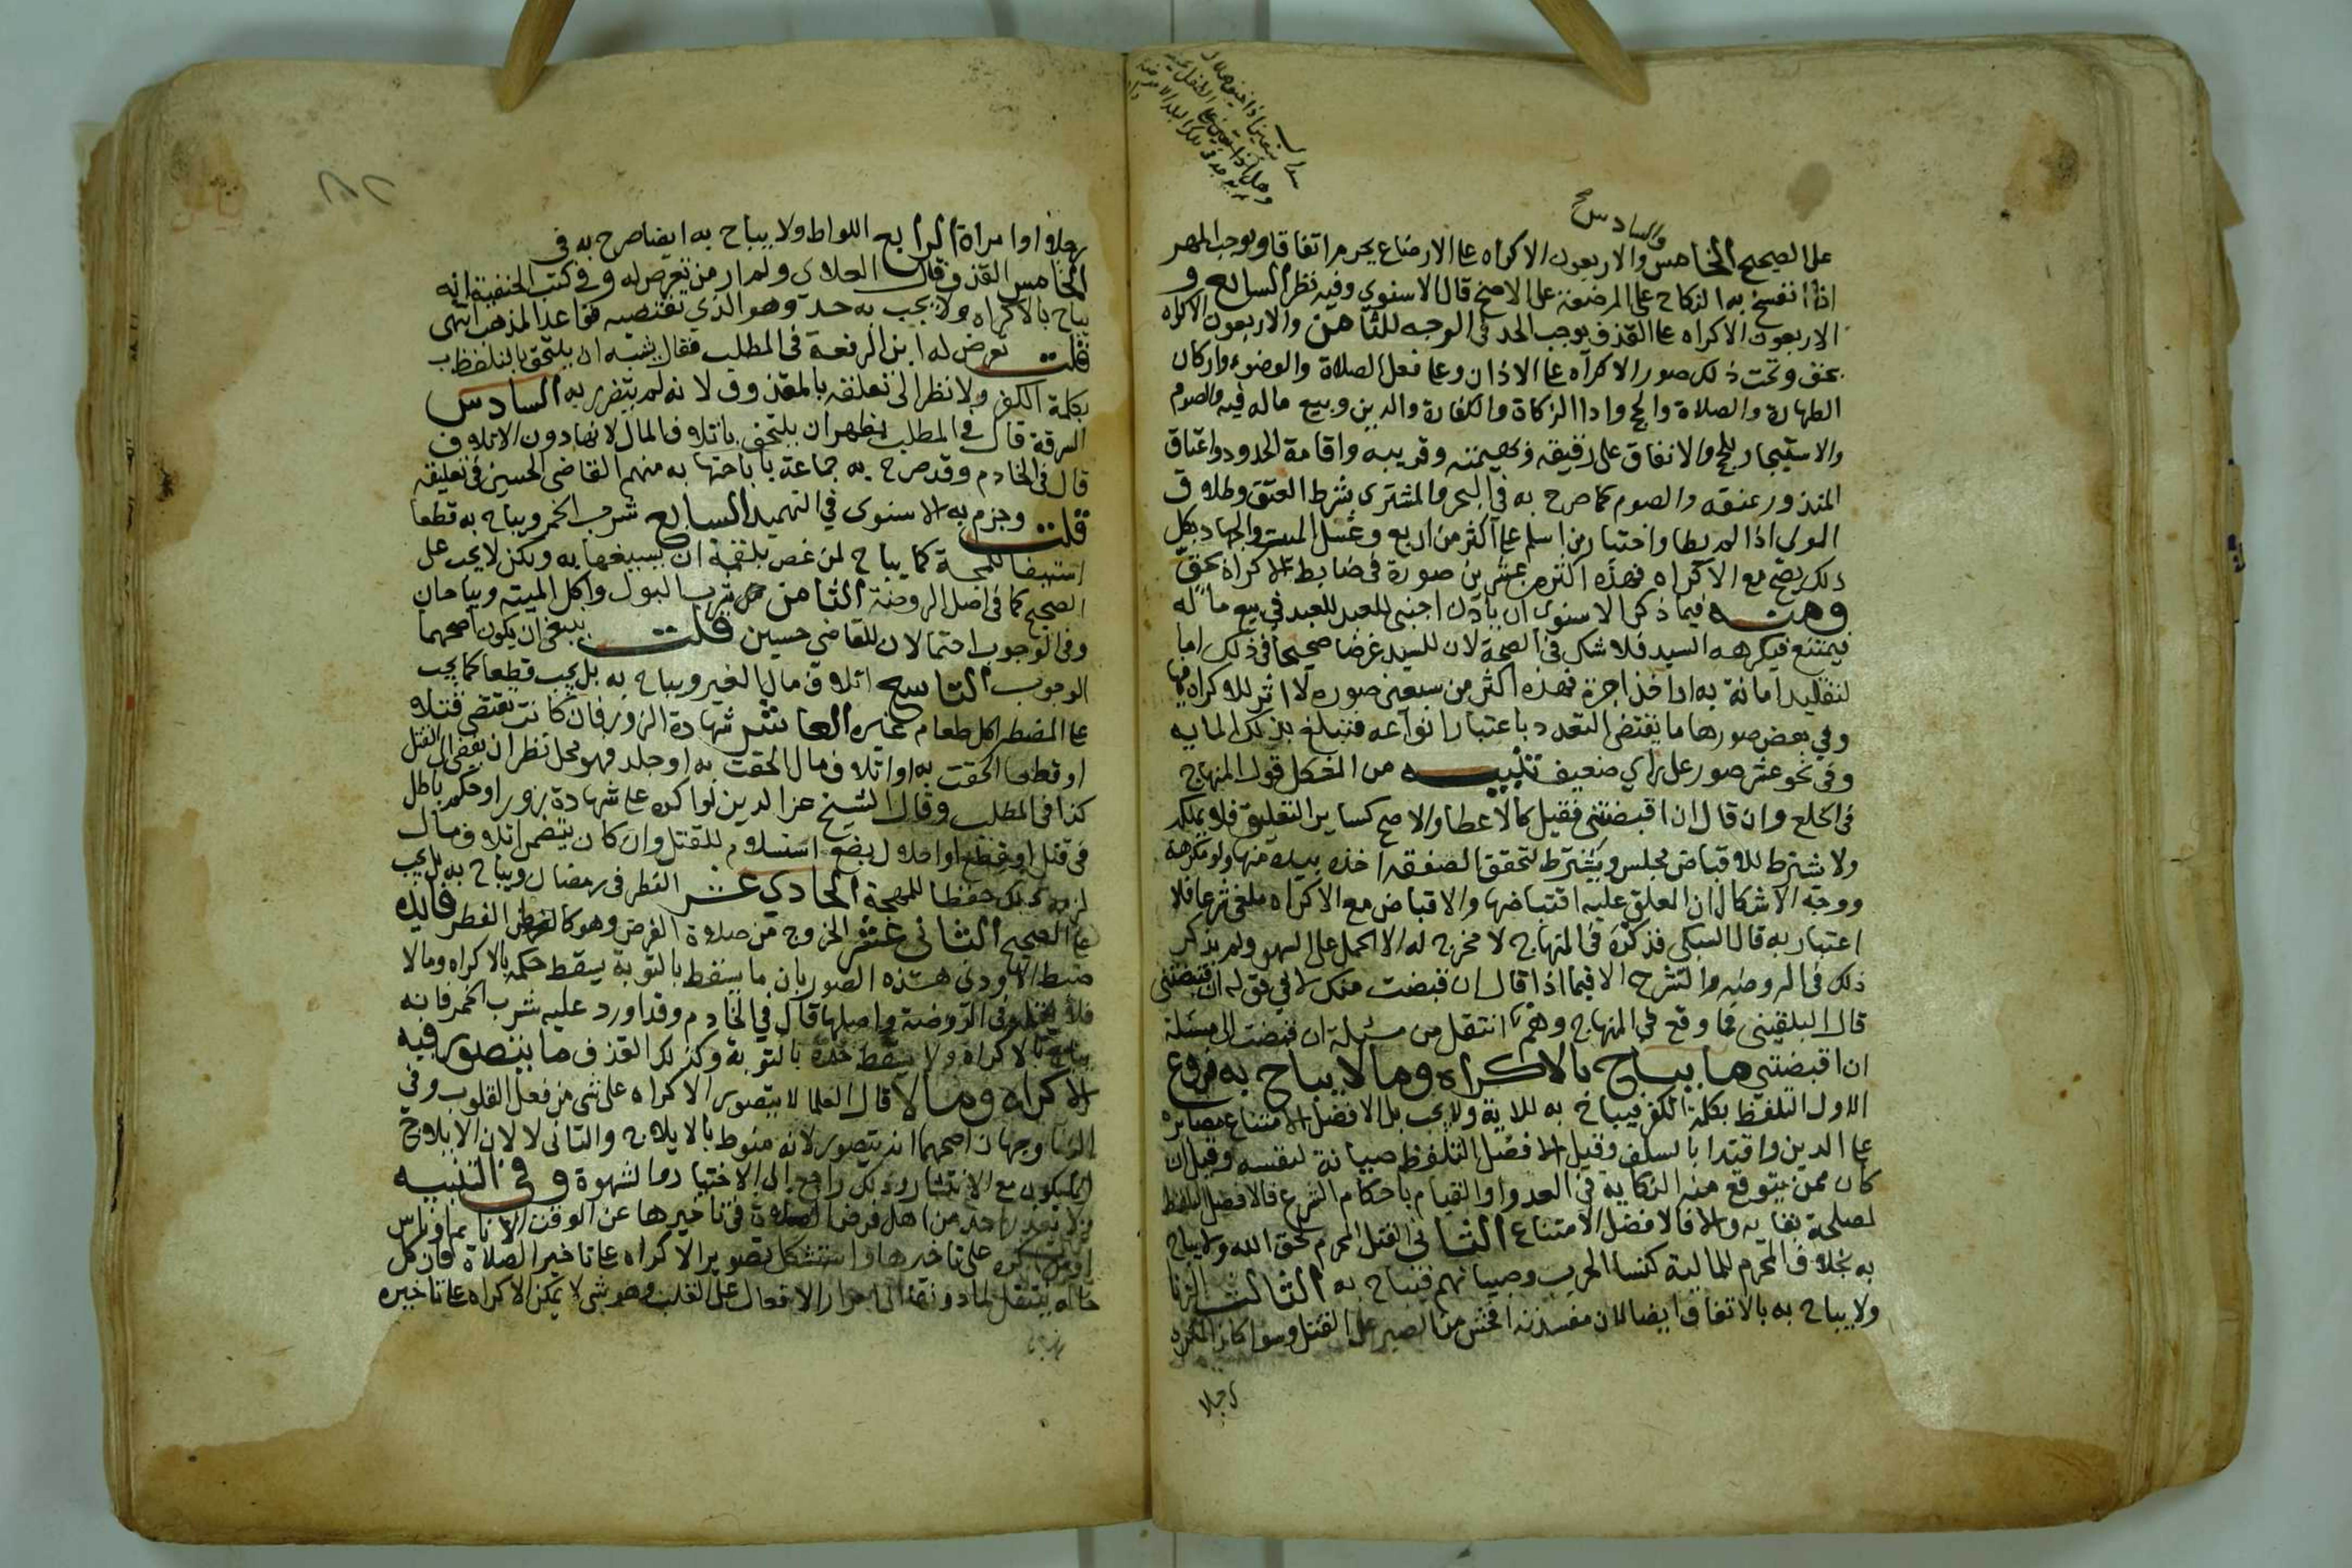 والسادس صح
على الصحيح الخامس والاربعون الاكراه على الارضاع يحرم اتفاقا ويوجب المهر
اذا انفسخ به النكاح على المرضعة على الاصح قال الاسنوي وفيه نظر السابع و
الاربعون الاكراه على القذف يوجب الحد في الوجه للثامن والاربعون الاكراه
بحق وتحت ذلك صور الاكراه على الاذان وعلى فعل الصلاة والوضوء واركان
الطهارة والصلاة والحج واداا الزكاة والكفارة والدين وبيع ماله فيه والصوم
والاستيجار للحج والانفاق على رقيقه وبهيمته وقريبه واقامة الحدود واعتاق
المنذور عتقه والصوم كما صرح به في البحر والمشترى بشرط العتق وطلاق
المولى اذا لم يطا واختيار من اسلم على اكثر من اربع وغسل الميت والجهاد فكل
ذلك يصح مع الاكراه فهذه اكثر من عشرين صورة في ضابط الاكراه بحق
ومنه فيما ذكر الاسنوي ان ياذن اجنبي للعبد للعبد في بيع ماله
فيمتنع فيكرهه السيد فلا شك في الصحة لان للسيد غرضا صحيحا في ذلك اما
لتقليد امانة به او اخذ اجرة فهذه اكثر من سبعين صورة لا اثر للاكراه فيها
وفي بعض صورها ما يقتضي التعدد باعتبار انواعه فتبلغ بذلك الماية
وفي نحو عشر صور على راي ضعيف تنبيه من المشكل قول المنهاج
في الخلع وان قال ان اقبضتني فقيل كالاعطا والاصح كساير التعليق فلا يملكه
ولا يشترط للاقباض مجلس ويشترط لتحقق الصفة اخذه بيده منها ولو مكرهة
ووجه الاشكال ان المعلق عليه اقباضها والاقباض مع الاكراه ملغي شرعا فلا
اعتبار به قال السبكي فذكره في المنهاج لا مخرج له الا الحمل على السهو ولم يذكر
ذلك في الروضة والشرح الا فيما اذا قال ان قبضت منك لا في قوله ان اقبضتني
قال البلقيني فما وقع في المنهاج وهم انتقل من مسئلة ان قبضت الى مسئلة
ان اقبضتني ما يباح بالاكراه وما لا يباح به فروع
الاول التلفظ بكلمة الكفر فيباح به للاية ولا يجب بل الافضل الامتناع مصابرة
على الدين واقتدا بالسلف وقيل الافضل التلفظ صيانة لنفسه وقيل ان
كان ممن يتوقع منه النكاية في العدو او القيام باحكام الشرع فالافضل التلفظ
لمصلحة بقايه والا فالافضل الامتناع الثاني القتل المحرم لحق الله ولا يباح
به بخلاف المحرم للمالية كنسا الحرب وصبيانهم فيباح به الثالث الزنا
ولا يباح به بالاتفاق ايضا لان مفسدته افحش من الصبر على القتل وسوا كان المكره
رجلا
رجلا او امراة الرابع اللواط ولا يباح به ايضا صرح به في
الخامس القذف قال العلاى ولم ار من تعرض له وفي كتب الحنفية انه
يباح بالاكراه ولا يجب به حد وهو الذي تقتضيه قواعد المذهب انتهى
قلت تعرض له ابن الرفعة في المطلب فقال يشبه ان يلتحق بالتلفظ ب
بكلمة الكفر ولا نظر الى تعلقه بالمقذوف لانه لم يتضرر به السادس
السرقة قال في المطلب يظهر ان يلتحق باتلاف المال لانها دون الاتلاف
قال في الخادم وقد صرح به جماعة باباحتها به منهم القاضي الحسين في تعليقه
قلت وجزم به الاسنوى في التمهيد السابع شرب الخمر ويباح به قطعا
استبقا للمهجة كما يباح لمن غص بلقمة ان يسيغها به ولكن لا يجب على
الصحيح كما في اصل الروضة الثامن شرب البول واكل الميتة ويباحان
وفي الوجوب احتمالان للقاضي حسين قلت ينبغي ان يكون اصحهما
الوجوب التاسع اتلاف مال الغير ويباح به بل يجب قطعا كما يجب
على المضطر اكل طعام غيره العاشر شهادة الزور فان كانت تقتضي قتلا
او قطعا الحقت به او اتلاف مال الحقت به او جلد فهو محل نظر اذ يفضي الى القتل
كذا في المطلب وقال الشيخ عز الدين لو اكره على شهادة بزور او حكم باطل
في قتل او قطع او احلال بضع استسلم للقتل وان كان يتضمن اتلاف مال
لزمه ذلك حفظا للمهجة الحادي عشر الفطر في رمضان ويباح به بل يجب
على الصحيح الثاني عشر الخروج من صلاة الفرض وهو كالفطر فايده
ضبط الاودني هذه الصور بان ما يسقط بالتوبة يسقط حكمه بالاكراه وما لا
فلا نقله في الروضة واصلها قال في الخادم وقد اورد عليه شرب الخمر فانه
يباح بالاكراه ولا يسقط حده بالتوبة وكذلك القذف ما يتصور فيه
الاكراه وما لا قال العلما لا يتصور الاكراه على شي من فعل القلوب وفي
الزنا وجهان اصحهما انه يتصور لانه منوط بالايلاج والثاني لا لان الايلاج
انما يكون مع الانتشار وذلك راجع الى الاختيار والشهوة وفي التنبيه
ولا يعذر احد من اهل فرض الصلاة في تاخيرها عن الوقت الا نايم او ناس
او من اكره على تاخيرها واستشكل تصوير الاكراه على تاخير الصلاة فان كل
حالة ينتقل لما دونها الى امرار الافعال على القلب وهو شي لا يمكن الاكراه على تاخيره